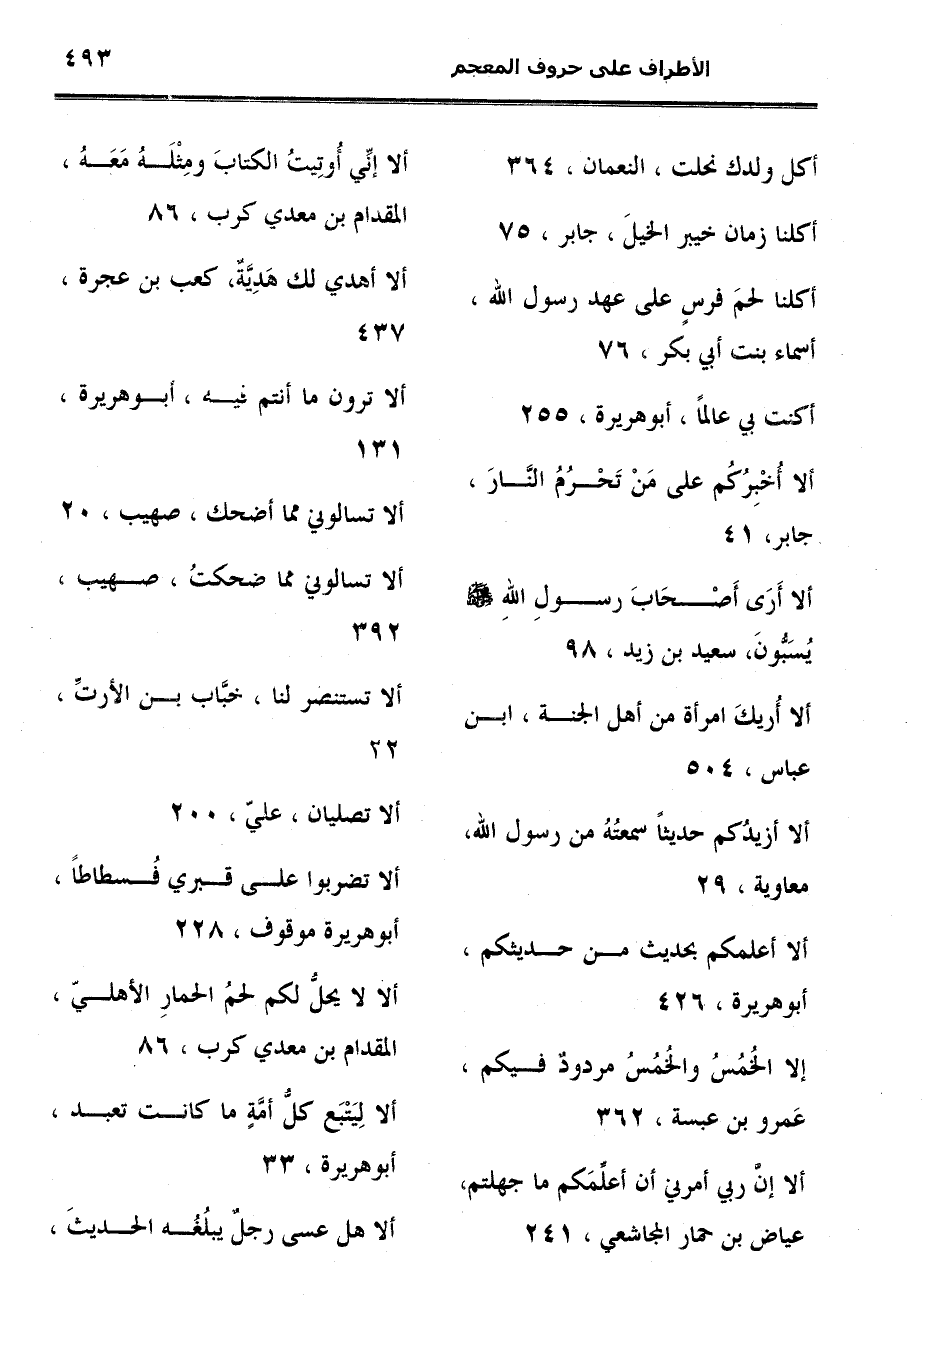 الأطراف على حروف المعجم
٤٩٣
أكل ولدك نحلت ، النعمان ، ٣٦٤
أكلنا زمان خيبر الخيلَ ، جابر ، ٧٥
أكلنا لحمَ فرسٍ على عهد رسول الله ،
أسماء بنت أبي بكر ، ٧٦
أكنت بي عالماً ، أبوهريرة ، ٢٥٥
ألا أُخْبِرُكُم على مَنْ تَحْرُمُ النَّارَ ،
جابر، ٤١
ألا أَرَى أَصْحَابَ رسولِ اللهِ ﷺ
يُسَبُّونَ، سعيد بن زيد ، ٩٨
ألا أُريكَ امرأة من أهل الجنة ، ابن
عباس ، ٥٠٤
ألا أزيدُكم حديثاً سمعتُهُ من رسول الله،
معاوية ، ٢٩
ألا أعلمكم بحديث من حديثكم ،
أبوهريرة ، ٤٢٦
إلا الخُمُسُ والخُمُسُ مردودٌ فيكم ،
عَمرو بن عبسة ، ٣٦٢
ألا إنَّ ربي أمرني أن أعلِّمَكم ما جهلتم،
عياض بن حمار المجاشعي ، ٢٤١
ألا إنِّي أُوتِيتُ الكتابَ ومِثْلَهُ مَعَهُ ،
المقدام بن معدي كرب ، ٨٦
ألا أهدي لك هَدِيَّةٌ، كعب بن عجرة ،
٤٣٧
ألا ترون ما أنتم فيه ، أبوهريرة ،
١٣١
ألا تسالوني مما أضحك ، صهيب ، ٢٠
ألا تسالوني مما ضحكتُ ، صهيب ،
٣٩٢
ألا تستنصر لنا ، خبَّاب بن الأرتِّ ،
٢٢
ألا تصليان ، عليّ ، ٢٠٠
ألا تضربوا على قبري فُسطاطاً ،
أبوهريرة موقوف ، ٢٢٨
ألا لا يحلُّ لكم لحمُ الحمارِ الأهليّ ،
المقدام بن معدي كرب ، ٨٦
ألا لِيَتْبَع كلُّ أمَّةٍ ما كانت تعبد ،
أبوهريرة ، ٣٣
ألا هل عسى رجلٌ يبلُغُه الحديثَ ،